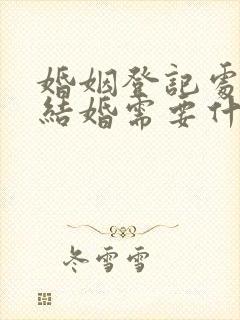 婚姻登記處
結婚需要什
冬雪雪